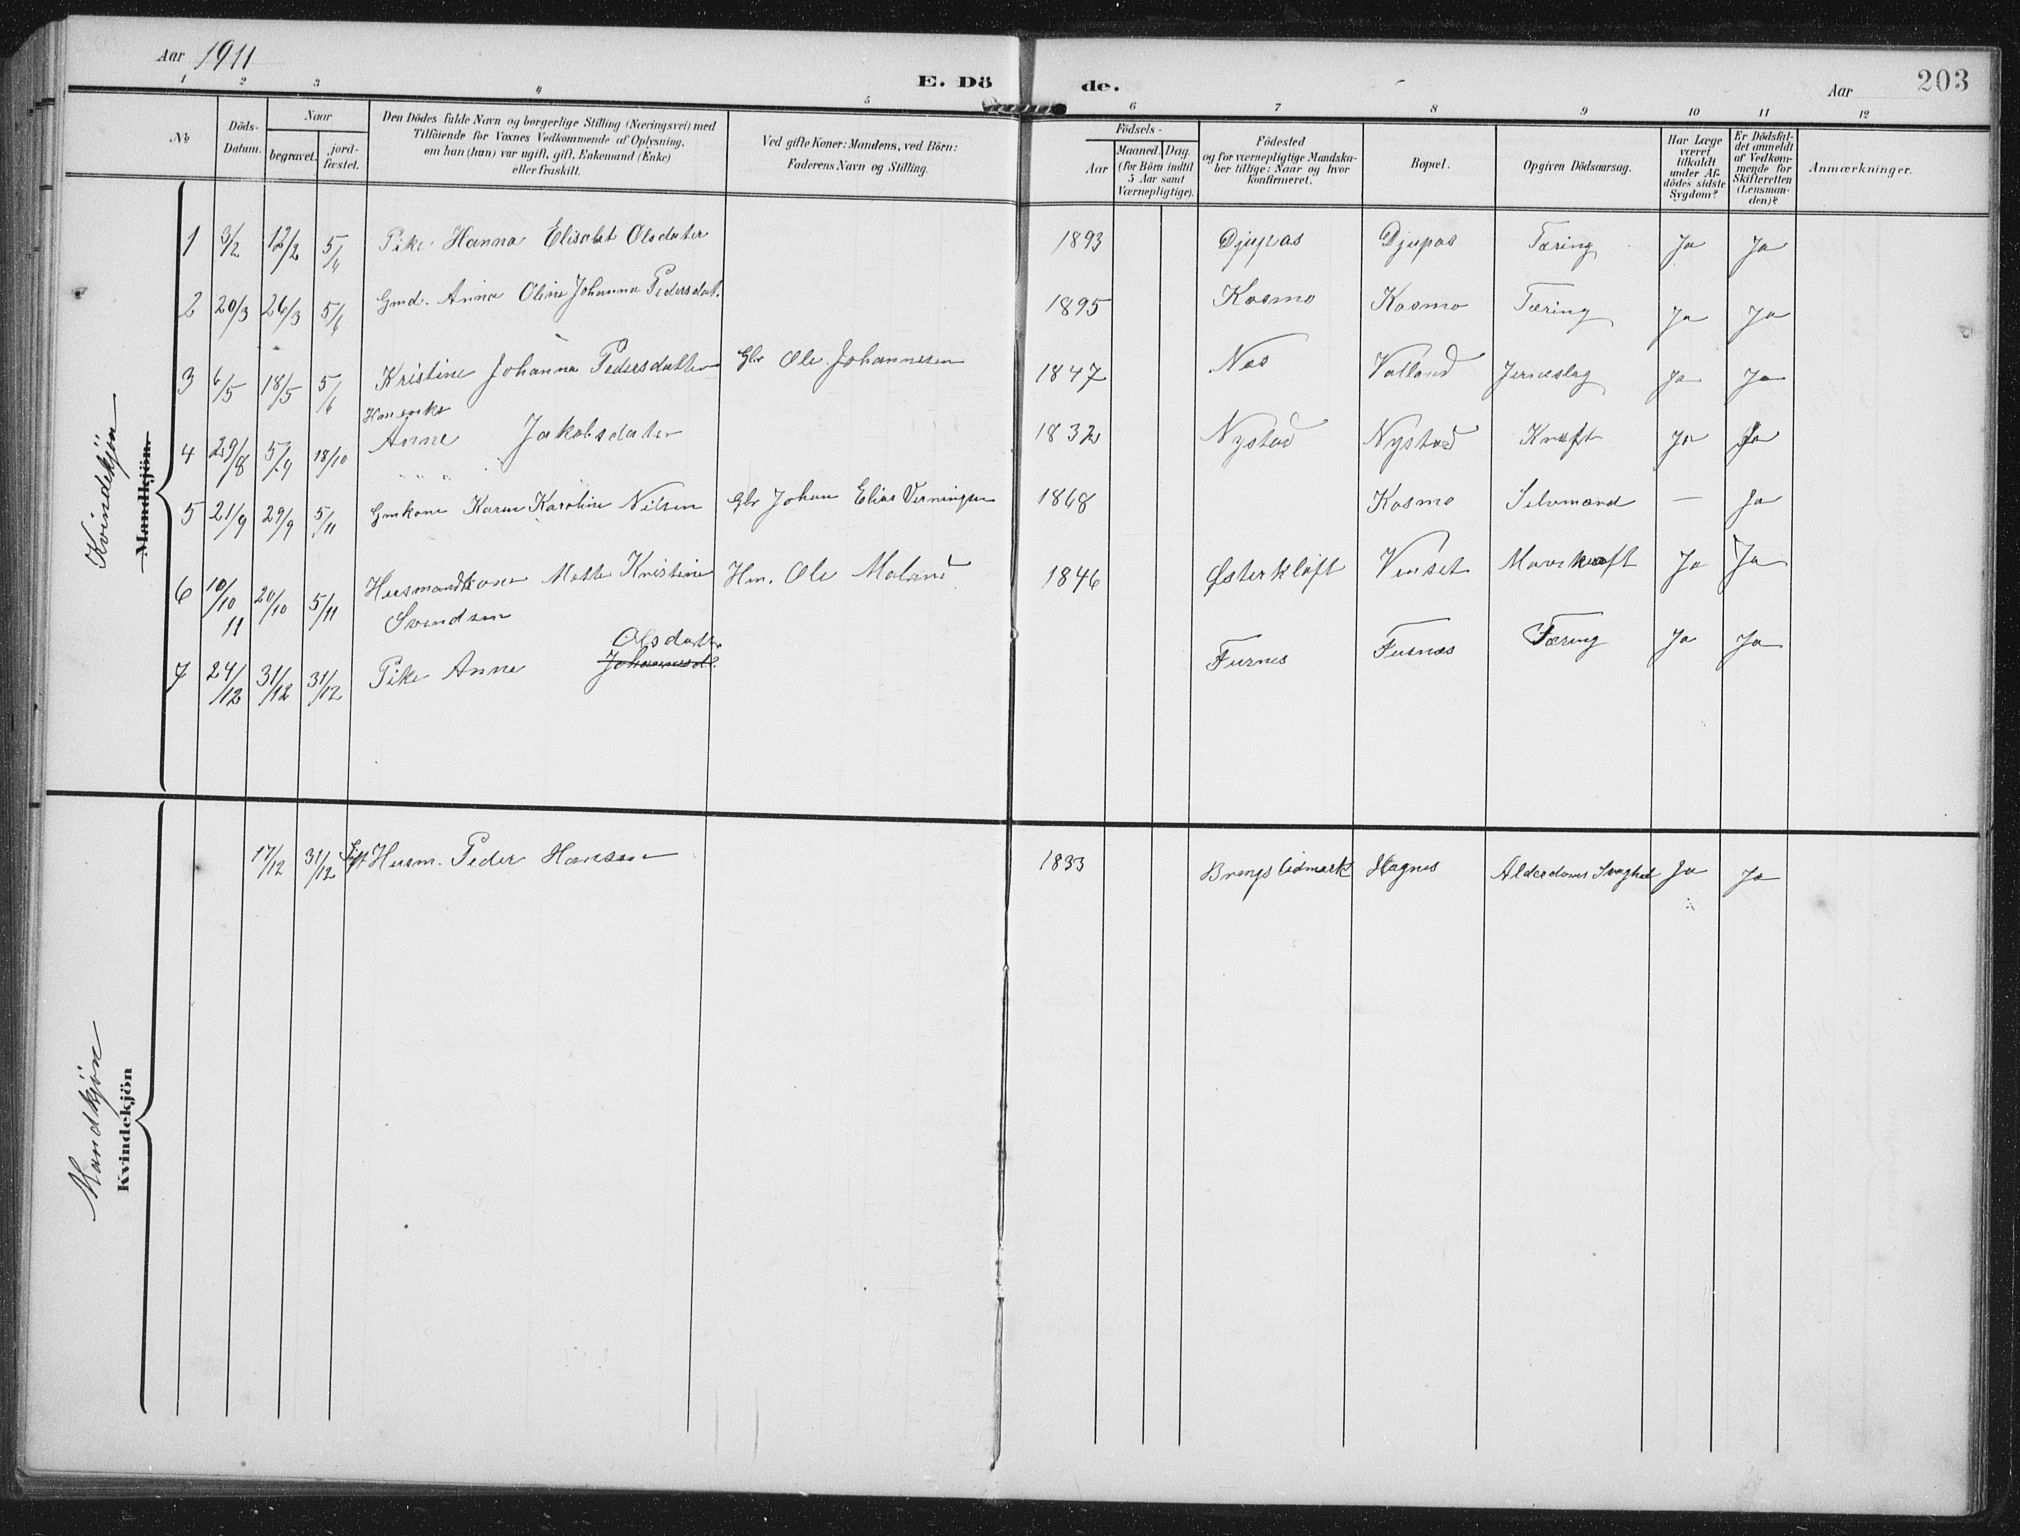 Aar 1911
E. Dö de.
Aar 203
1 2 3 4 5 6 7 8 9 10 11 12
No
Döds-
Datum.
Naar
begravet.
jord-
fæstet.
Den Dödes fulde Navn og borgerlige Stilling (Næringsvei) med
Tilföiende for Voxnes Vedkommende af Oplysning,
om han (hun) var ugift, gift, Enkemand (Enke)
eller fraskilt.
Ved gifte Koner: Mandens, ved Börn:
Faderens Navn og Stilling.
Födsels-
Aar
Maaned. Dag.
(for Börn indtil
5 Aar samt
Værnepligtige).
Födested
og for værnepligtige Mandska-
ber tillige: Naar og hvor
konfirmeret.
Bopæl.
Opgiven Dödsaarsag.
Har Læge
været
tilkaldt
under Af-
dödes sidste
Sygdom?
Er Dödsfal-
det anmeldt
af Vedkom-
mende for
Skifteretten
(Lensman-
den)?
Anmærkninger.
Kvindekjön
Mandkjön
1 3/2 12/2 5/4 Pike Hanna Elisabet Olsdater 1893 Djupos Djupos Tæring Ja Ja
2 20/3 26/3 5/6 Gmd. Anna Oline Johanna Pedersdat. 1895 Kosmo Kosmo Tæring Ja Ja
3 6/5 18/5 5/6 Kristine Johanna Pedersdatter Gbr Ole Johannesen 1847 Nes Valland Jerneslag Ja Ja
4 29/8 5/9 18/10 Anne Jakobsdater 1832 Nystad Nystad Kreft Ja Ja
5 21/9 29/9 5/11 Gmkone Karen Karoline Nilsen Gbr Johan Elias 1868 Kosmo Selvmord — Ja
6 10/10 11 20/10 5/11 Husmandkone Mette Kristine Hm. Ole Moland 1846 Østerkløft Venset Mavekræft Ja Ja
Svendsen
Olsdatter
7 24/12 31/12 31/12 Pike Anne Johannesd. Furnes Fusnæs Tæring Ja Ja
Mandkjön
Kvindekjön
17/12 31/12 Husm. Peder Hansen 1833 Hagnes Alderdoms Svaghed Ja Ja